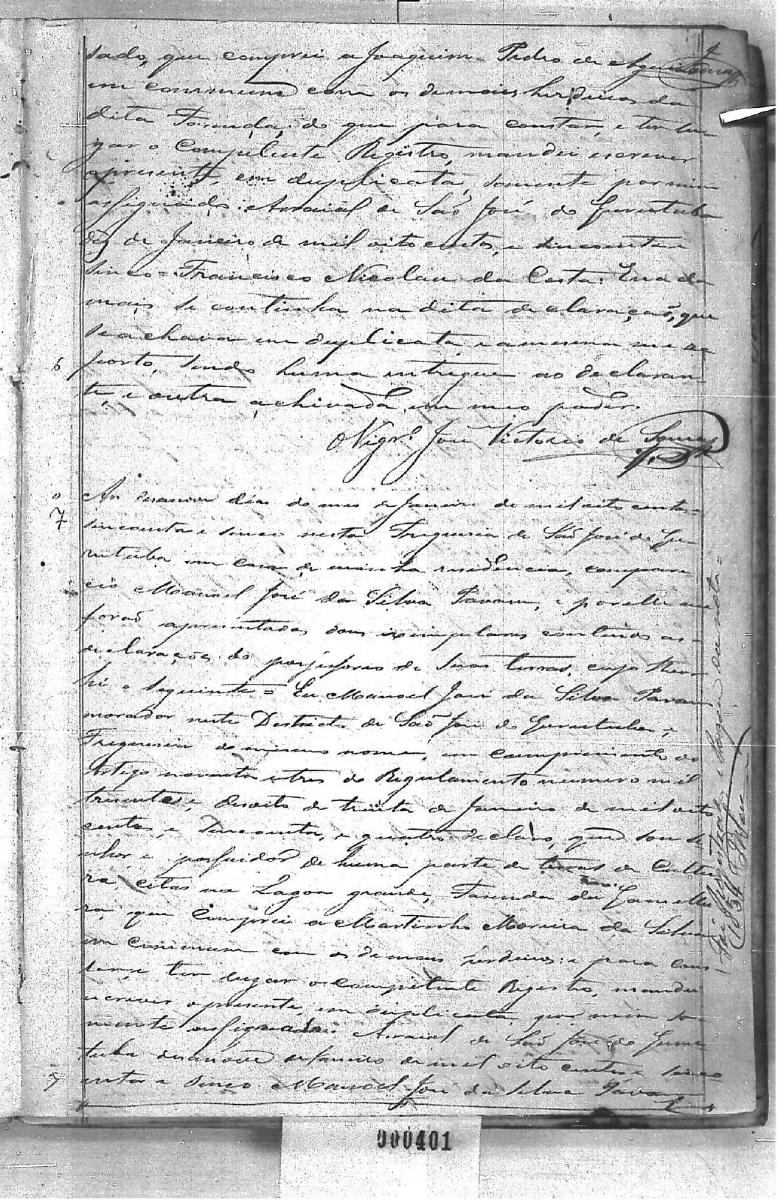 sado, que comprei a Joaquim Pedro de
em commum com os demais herdeiros da
dita Fazenda do que para constar, e ter lu
gar o Competente Registro, mandei escrever
apresente, em duplicata, somente por mim
assignado. Arraial de São José do Gurutuba
dez de Janeiro de mil oito centos, e sincoenta e
sinco = Francisco Nicolau da Costa. E nada
mais se continha na dita declaração, que
se achava em duplicata, e a mesma me re
porto, sendo huma intregue ao declaran
te, e outra achivada em meu poder.
O Vigr.º José Victorio de Souza
6
7
Aos desanove dias do mes de Janeiro de mil oito centos
sincoenta e sinco nesta Freguesia de São José do Gu
rutuba em casa de minha residencia, compare
ceo Manoel José da Silva, e por elle me
forão apresentados dous exemplares contendo as
declarações do possessorio de suas terras, cujo theor
hé o seguinte = Eu Manoel José da Silva
morador neste Districto de São José do Gurutuba, e
Freguesia do mesmo nome, em comprimento do
Artigo noventa e tres do Regulamento numero mil
trezentos, e desoito de trinta de Janeiro de mil oito
centos, e sincoenta, e quatro declaro, que sou se
nhor e possuidor de huma parte de terras de Cultu
ra citas na Lagoa grande, Fazenda da Gamellei
ra, que Comprei a Martinho Moreira da Silva
em commum com os demais herdeiros: e para cons
tar, e ter lugar o Competente Registro, mandei
escrever o presente, em duplicata, por mim so
mente assignado. Arraial de São José do Guru
tuba desanove de Janeiro de mil oito centos e sinco
enta e sinco Manoel José da Silva
7
000401